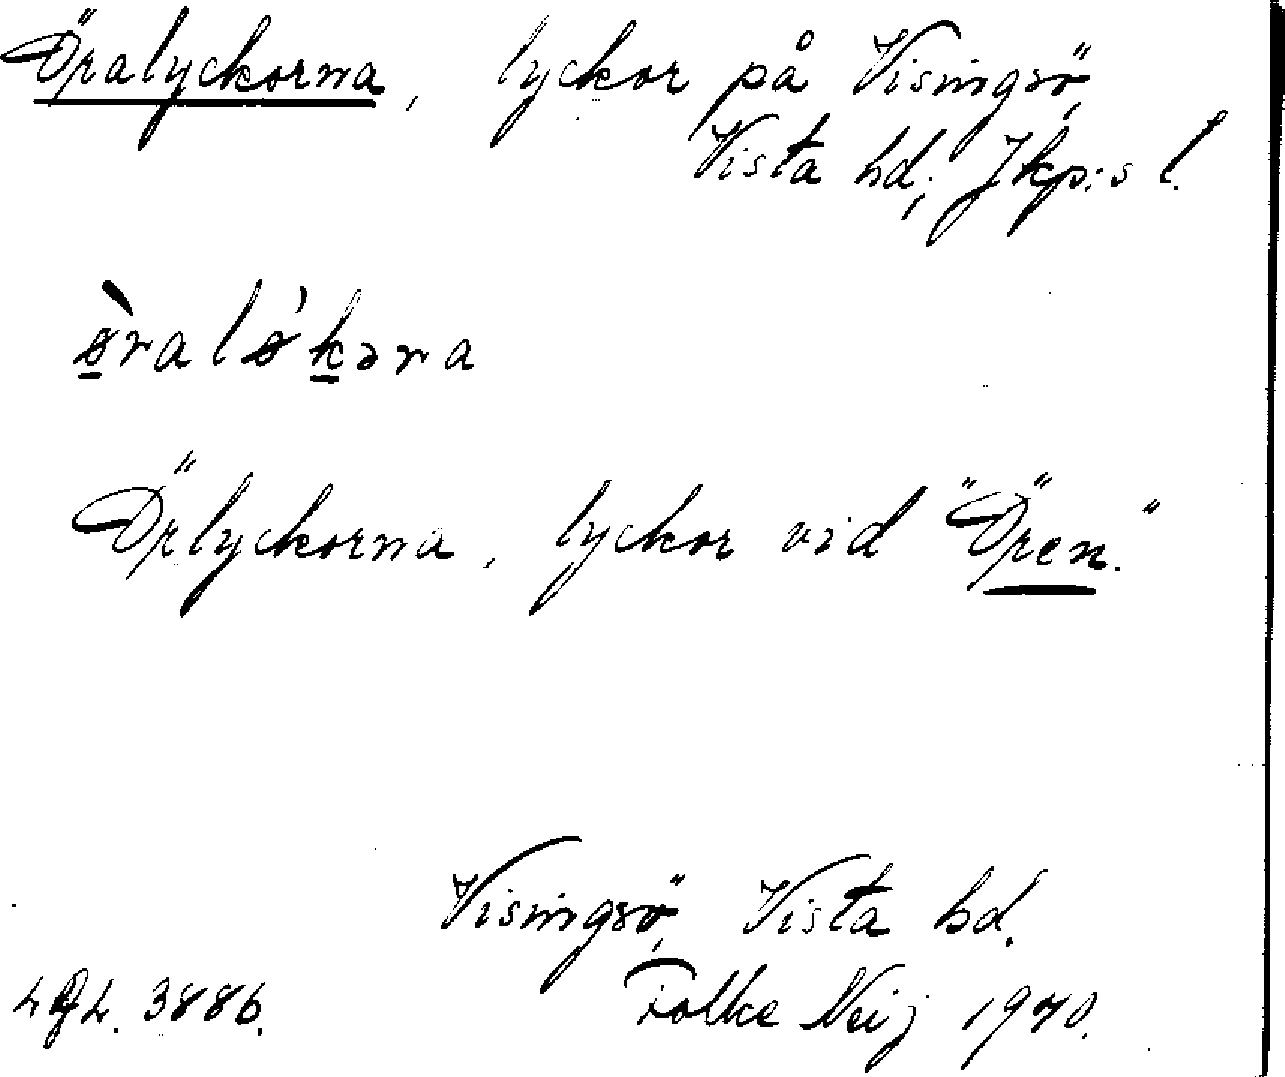 Öralyckorna, lyckor på Visingsö,
Vista hd; Jkp:s l.
ø̀raløʹkəra
Örlyckorna, lyckor vid "Ören."
Visingsö, Vista hd.
3886. Folke Neij 1940.